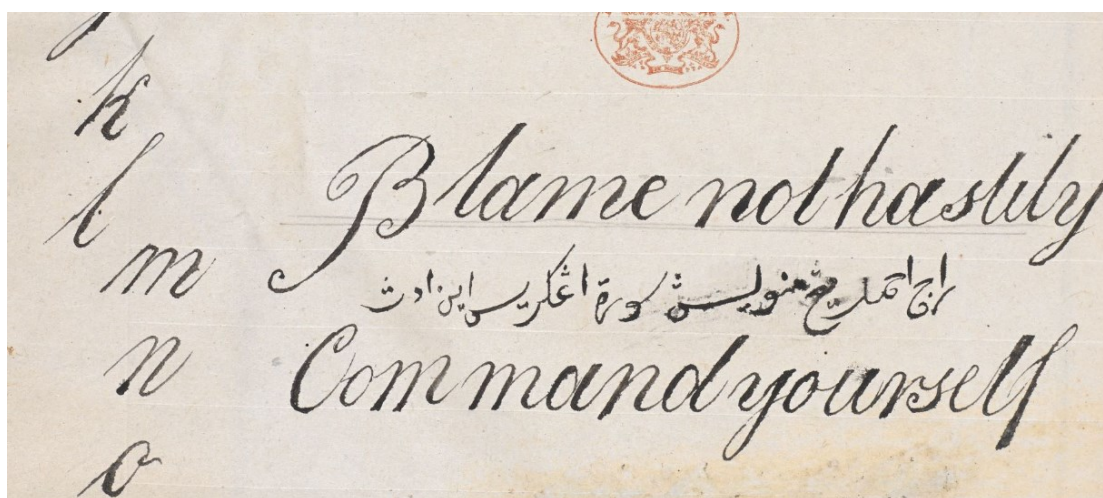 k
l
m
n
o
Blame not hastily
راج احمد يڠ منوليس سورة اڠكريس اين ادڽ
Command yourself